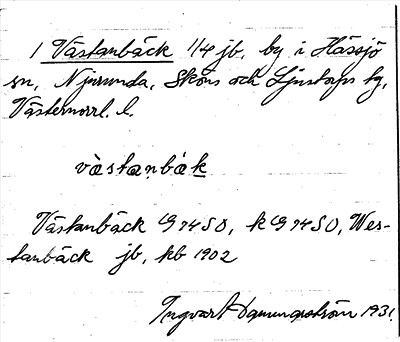 1 Västanbäck 1/4 jb, by i Hässjö
sn, Njurunda, Sköns och Ljustorps tg,
Västernorrl. l.
västanbäk
Västanbäck G 74 SO, k G 74 SO, Wes-
tanbäck jb, kb 1902
Ingvar 1931.